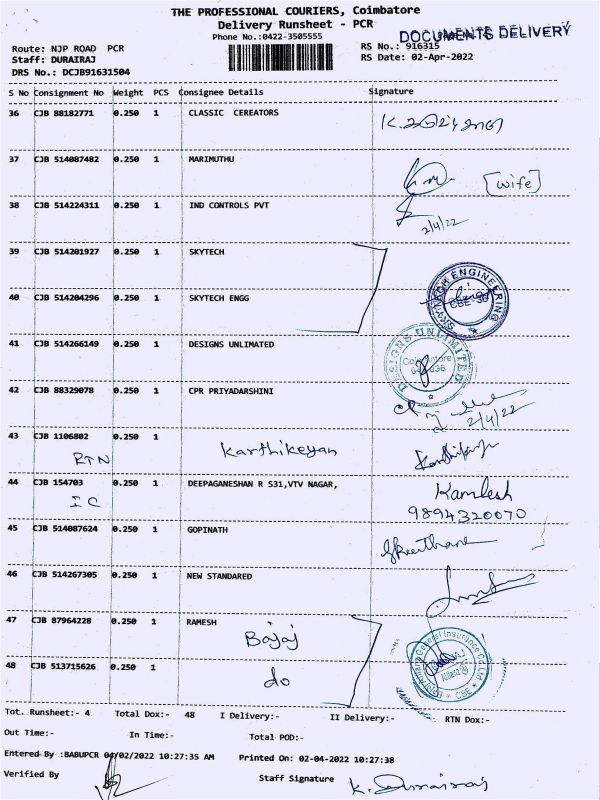 THE PROFESSIONAL COURIERS, Coimbatore
Delivery Runsheet - PCR
Phone No.:0422-3505555
DOCUMENTS DELIVERY
Route: NJP ROAD PCR
RS No.: 916315
Staff: DURAIRAJ
RS Date: 02-Apr-2022
DRS No.: DCJB91631504
S No Consignment No Weight PCS Consignee Details Signature
36 CJB 88182771 0.250 1 CLASSIC CEREATORS
37 CJB 514087482 0.250 1 MARIMUTHU [wife]
38 CJB 514224311 0.250 1 IND CONTROLS PVT
2/4/22
39 CJB 514201927 0.250 1 SKYTECH
SKYTECH ENGINEERING
40 CJB 514204296 0.250 1 SKYTECH ENGG
41 CJB 514266149 0.250 1 DESIGNS UNLIMATED
DESIGNS UNLIMITED
Coimbatore
42 CJB 88329078 0.250 1 CPR PRIYADARSHINI
2/4/22
43 CJB 1106802 0.250 1 Karthikeyan
RTN
44 CJB 154703 0.250 1 DEEPAGANESHAN R S31,VTV NAGAR, Kamlesh
IC 9894320070
45 CJB 514087624 0.250 1 GOPINATH
46 CJB 514267305 0.250 1 NEW STANDARED
47 CJB 87964228 0.250 1 RAMESH
Bajaj
General Insurance Co. Ltd.
CBE
48 CJB 513715626 0.250 1 do
Tot. Runsheet:- 4 Total Dox:- 48 I Delivery:- II Delivery:- RTN Dox:-
Out Time:- In Time:- Total POD:-
Entered By :BABUPCR 04/02/2022 10:27:35 AM Printed On: 02-04-2022 10:27:38
Verified By Staff Signature K. Durairaj